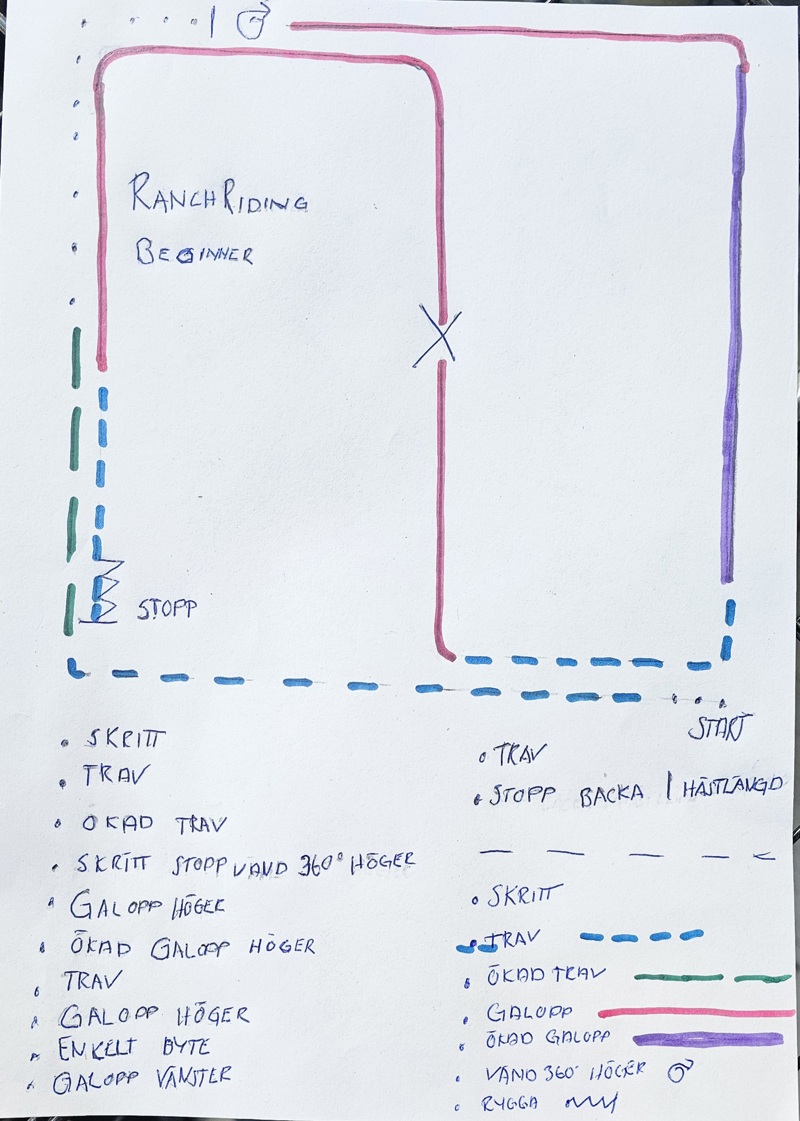 RANCHRIDING
BEGINNER
STOPP
START
• SKRITT
• TRAV
• ÖKAD TRAV
• SKRITT STOPP VÄND 360° HÖGER
• GALOPP HÖGER
• ÖKAD GALOPP HÖGER
• TRAV
• GALOPP HÖGER
• ENKELT BYTE
• GALOPP VÄNSTER
• TRAV
• STOPP BACKA 1 HÄSTLÄNGD
• SKRITT
• TRAV
• ÖKAD TRAV
• GALOPP
• ÖKAD GALOPP
• VÄND 360° HÖGER
• RYGGA